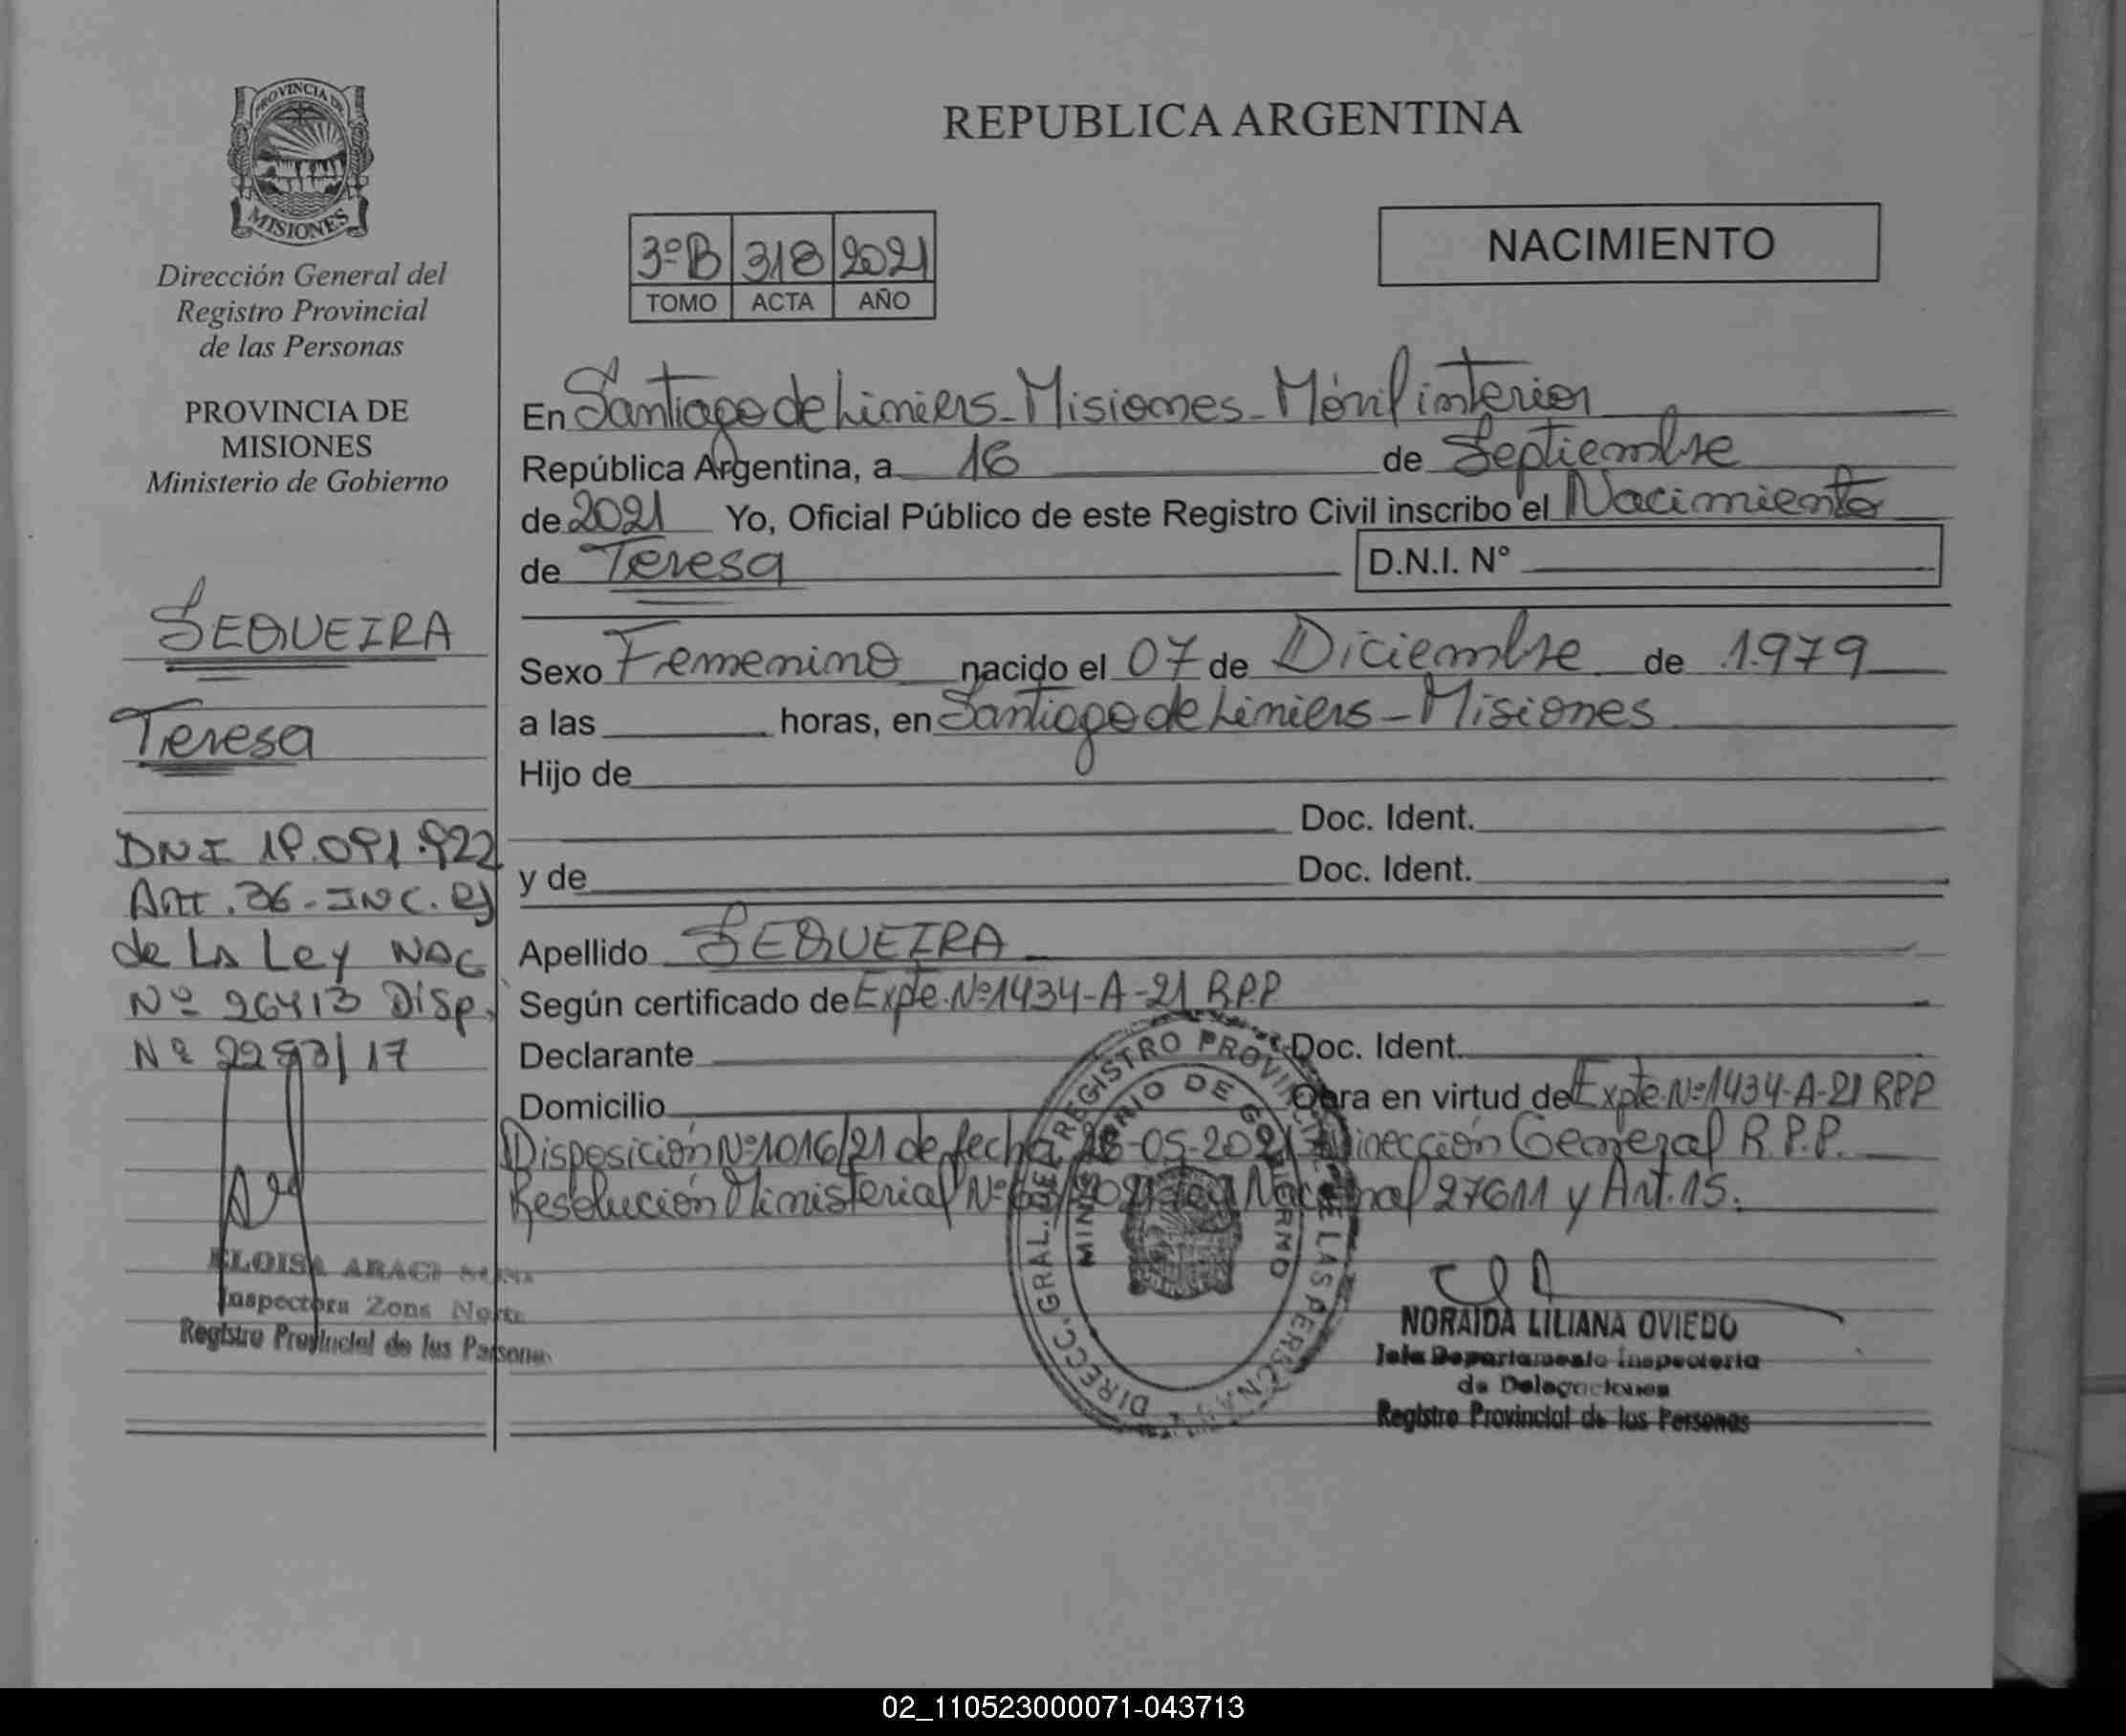 PROVINCIA DE
MISIONES
Dirección General del
Registro Provincial
de las Personas
PROVINCIA DE
MISIONES
Ministerio de Gobierno
SEQUEIRA
Teresa
DNI
Art. 36 - INC. e)
de LA Ley NAC
Nº 26413 Disp.
Nº 2293/17
ELOISA
Inspectora Zona Norte
Registro Provincial de las Personas
REPUBLICA ARGENTINA
3ºB 318 2021
TOMO ACTA AÑO
NACIMIENTO
En Santiago de Liniers - Misiones - Móvil interior
República Argentina, a 16 de Septiembre
de 2021 Yo, Oficial Público de este Registro Civil inscribo el Nacimiento
de Teresa D.N.I. N°
Sexo Femenino nacido el 07 de Diciembre de 1.979
a las horas, en Santiago de Liniers - Misiones
Hijo de
Doc. Ident.
y de Doc. Ident.
Apellido SEQUEIRA
Según certificado de Expte. Nº 1434-A-21 R.P.P
Declarante Doc. Ident.
Domicilio Obra en virtud de Expte. Nº 1434-A-21 RPP
Disposición Nº 1016/21 de fecha -05-2021 Dirección General R.P.P.
Resolución Ministerial Nº Ley Nacional 27611 y Art. 15.
DIRECC. GRAL. DEL REGISTRO PROVINCIAL DE LAS PERSONAS
MINISTERIO DE GOBIERNO
NORAIDA LILIANA OVIEDO
Jefa Departamento Inspectoria
de Delegaciones
Registro Provincial de las Personas
02_110523000071-043713